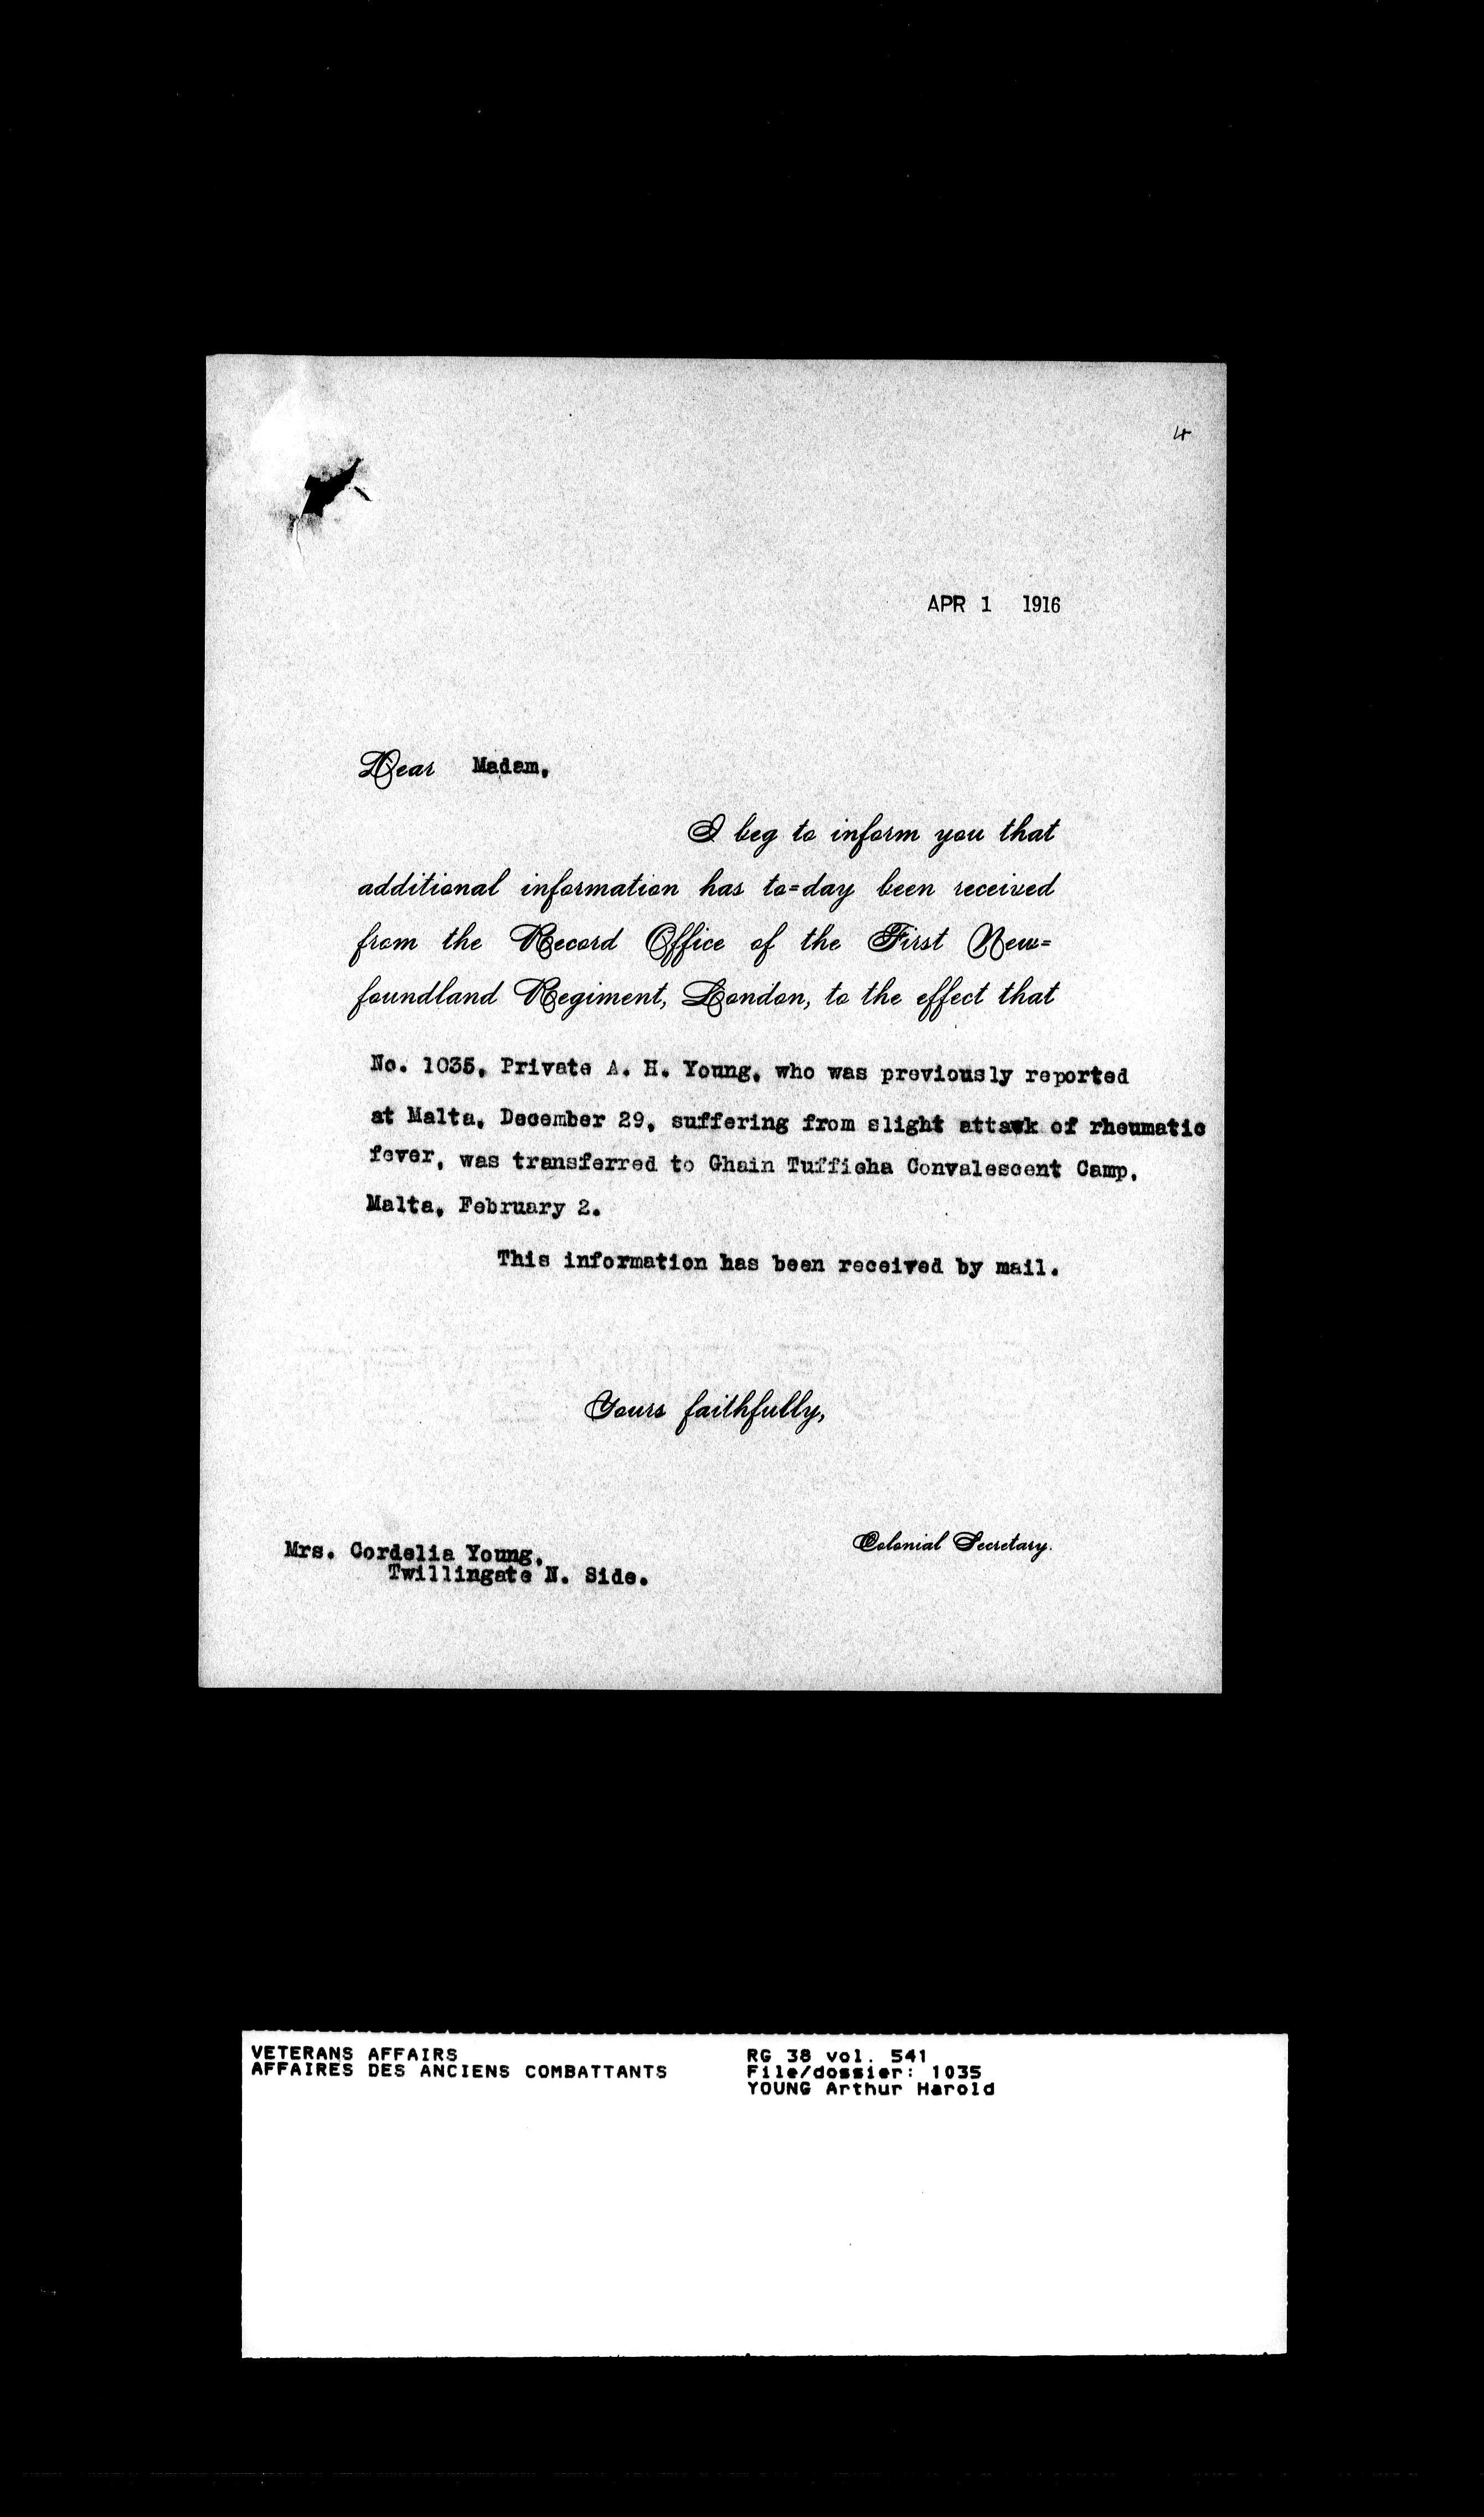 4
APR 1 1916
Dear Madam,
I beg to inform you that
additional information has to=day been received
from the Record Office of the First New=
foundland Regiment, London, to the effect that
No. 1035, Private A. H. Young, who was previously reported
at Malta, December 29, suffering from slight attack of rheumatic
fever, was transferred to Ghain Tuffieha Convalescent Camp,
Malta, February 2.
This information has been received by mail.
Yours faithfully,
Colonial Secretary.
Mrs. Cordelia Young,
Twillingate N. Side.
VETERANS AFFAIRS
AFFAIRES DES ANCIENS COMBATTANTS
RG 38 vol. 541
File/dossier: 1035
YOUNG Arthur Harold